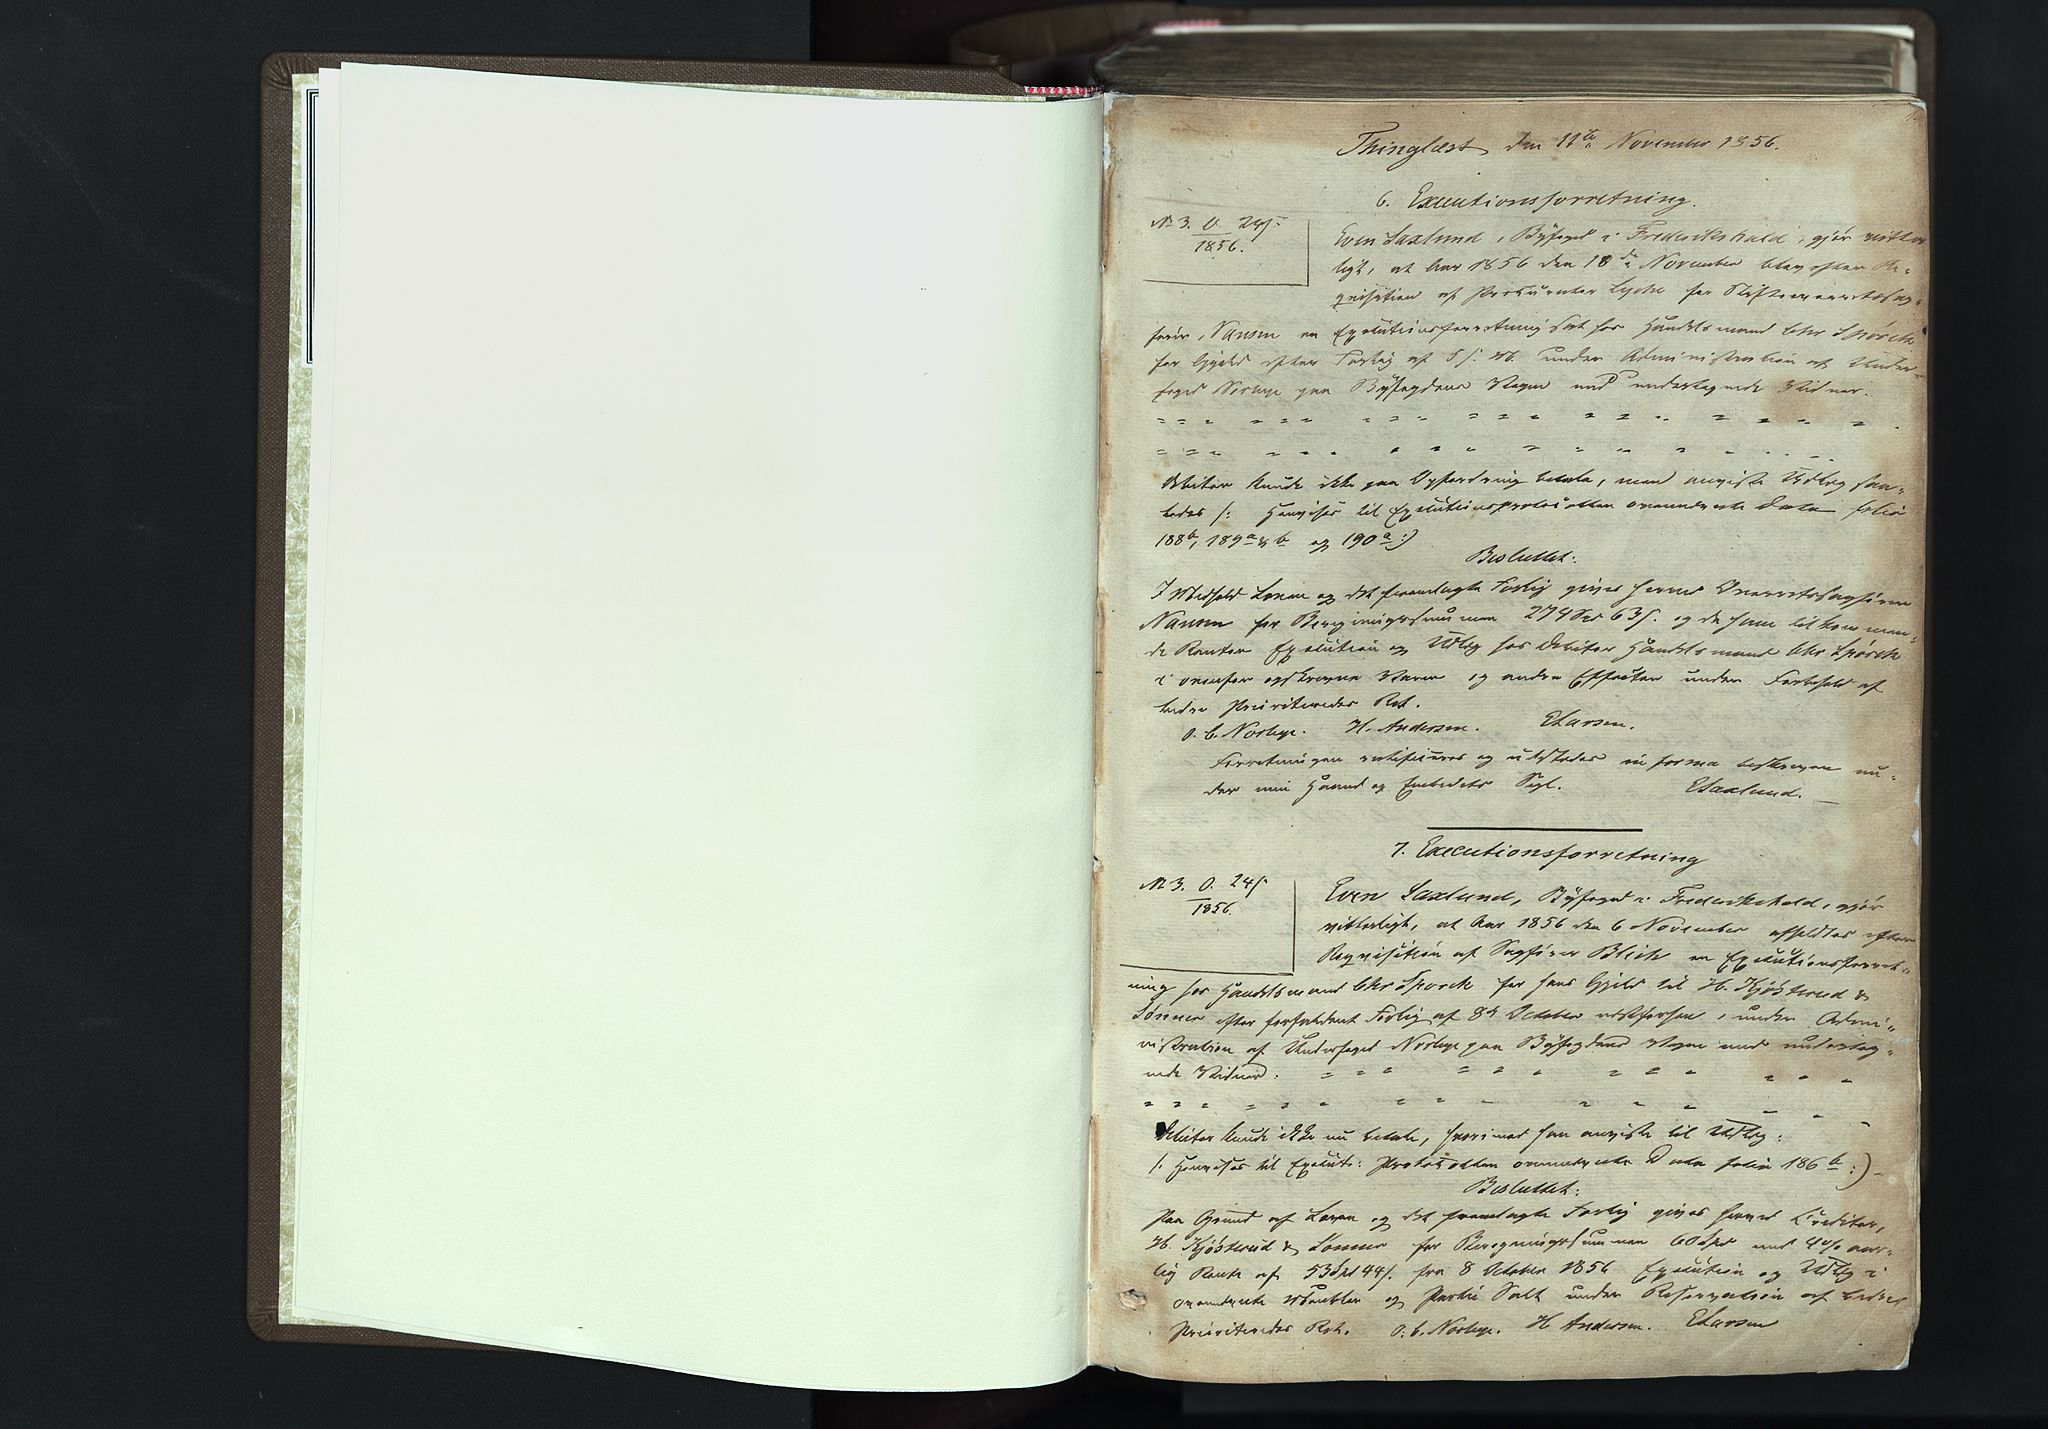 Thinglæst den 11te November 1856.
6. Executionsforretning.
No 3. O. 24 s
1856.
Even Saxlund, Byfoged i Frederikshald, gjør vitter
ligt, at Aar 1856 den 10de November blev efter Re-
quisition af Procurator Lyche for Stiftsoverretssag-
fører Nansen en Executionsforretning sat hos Handelsmand Chr Spørck
for Gjeld efter Forlig af under Administration af Under-
foged Norbye paa Byfogdens Vegne med undertegnede Vidner.
Debitor kunde ikke paa Opfordring betale, men anviste Udlæg saa-
ledes /: Henvises til Executionsprotocollen ovennævnte Data folio
188b, 189a & b og 190a :/
Besluttet:
I Medhold Loven og det fremlagte Forlig gives herved Overretssagfører
Nansen for Beregningssummen 274 Spd 63 s. og de ham tilkommen-
de Renter Execution og Udlæg hos Debitor Handelsmand Chr Spørck
i ovenfor opskrevne Varer og andre Effecter under Forbehold af
bedre Prioriteredes Ret.
O. C. Norbye. H. Andersen. E Larsen.
Forretningen ratificeres og udstedes in forma beskreven un-
der min Haand og Embedets Segl. ESaxlund.
7. Executionsforretning
No 3. O. 24 s
1856.
Even Saxlund, Byfoged i Frederikshald, gjør
vitterligt, at Aar 1856 den 6 November afholdtes efter
Requisition af Sagfører Blich en Executionsforret-
ning hos Handelsmand Chr Spørck for hans Gjeld til H. Kjøsterud &
Sønner efter forfaldent Forlig af 8de October under Admi-
nistration af Underfoged Norbye paa Byfogdens Vegne med underteg-
nede Vidner.
Debitor kunde ikke nu betale, hvorimod han anviste til Udlæg:
/: Henvises til Executs: Protocollen ovennævnte Data folio 186b :/
Besluttet:
Paa Grund af Loven og det fremlagte Forlig gives herved Creditor,
H. Kjøsterud & Sønner for Beregningssummen 60 Spd med 4 % aar-
lig Rente af 53 Spd 44 s. fra 8 October 1856 Execution og Udlæg i
ovennævnte Meubler og Partie Salt under Reservation af bedre
Prioriteredes Ret. O. C. Norbye. H Andersen. ELarsen